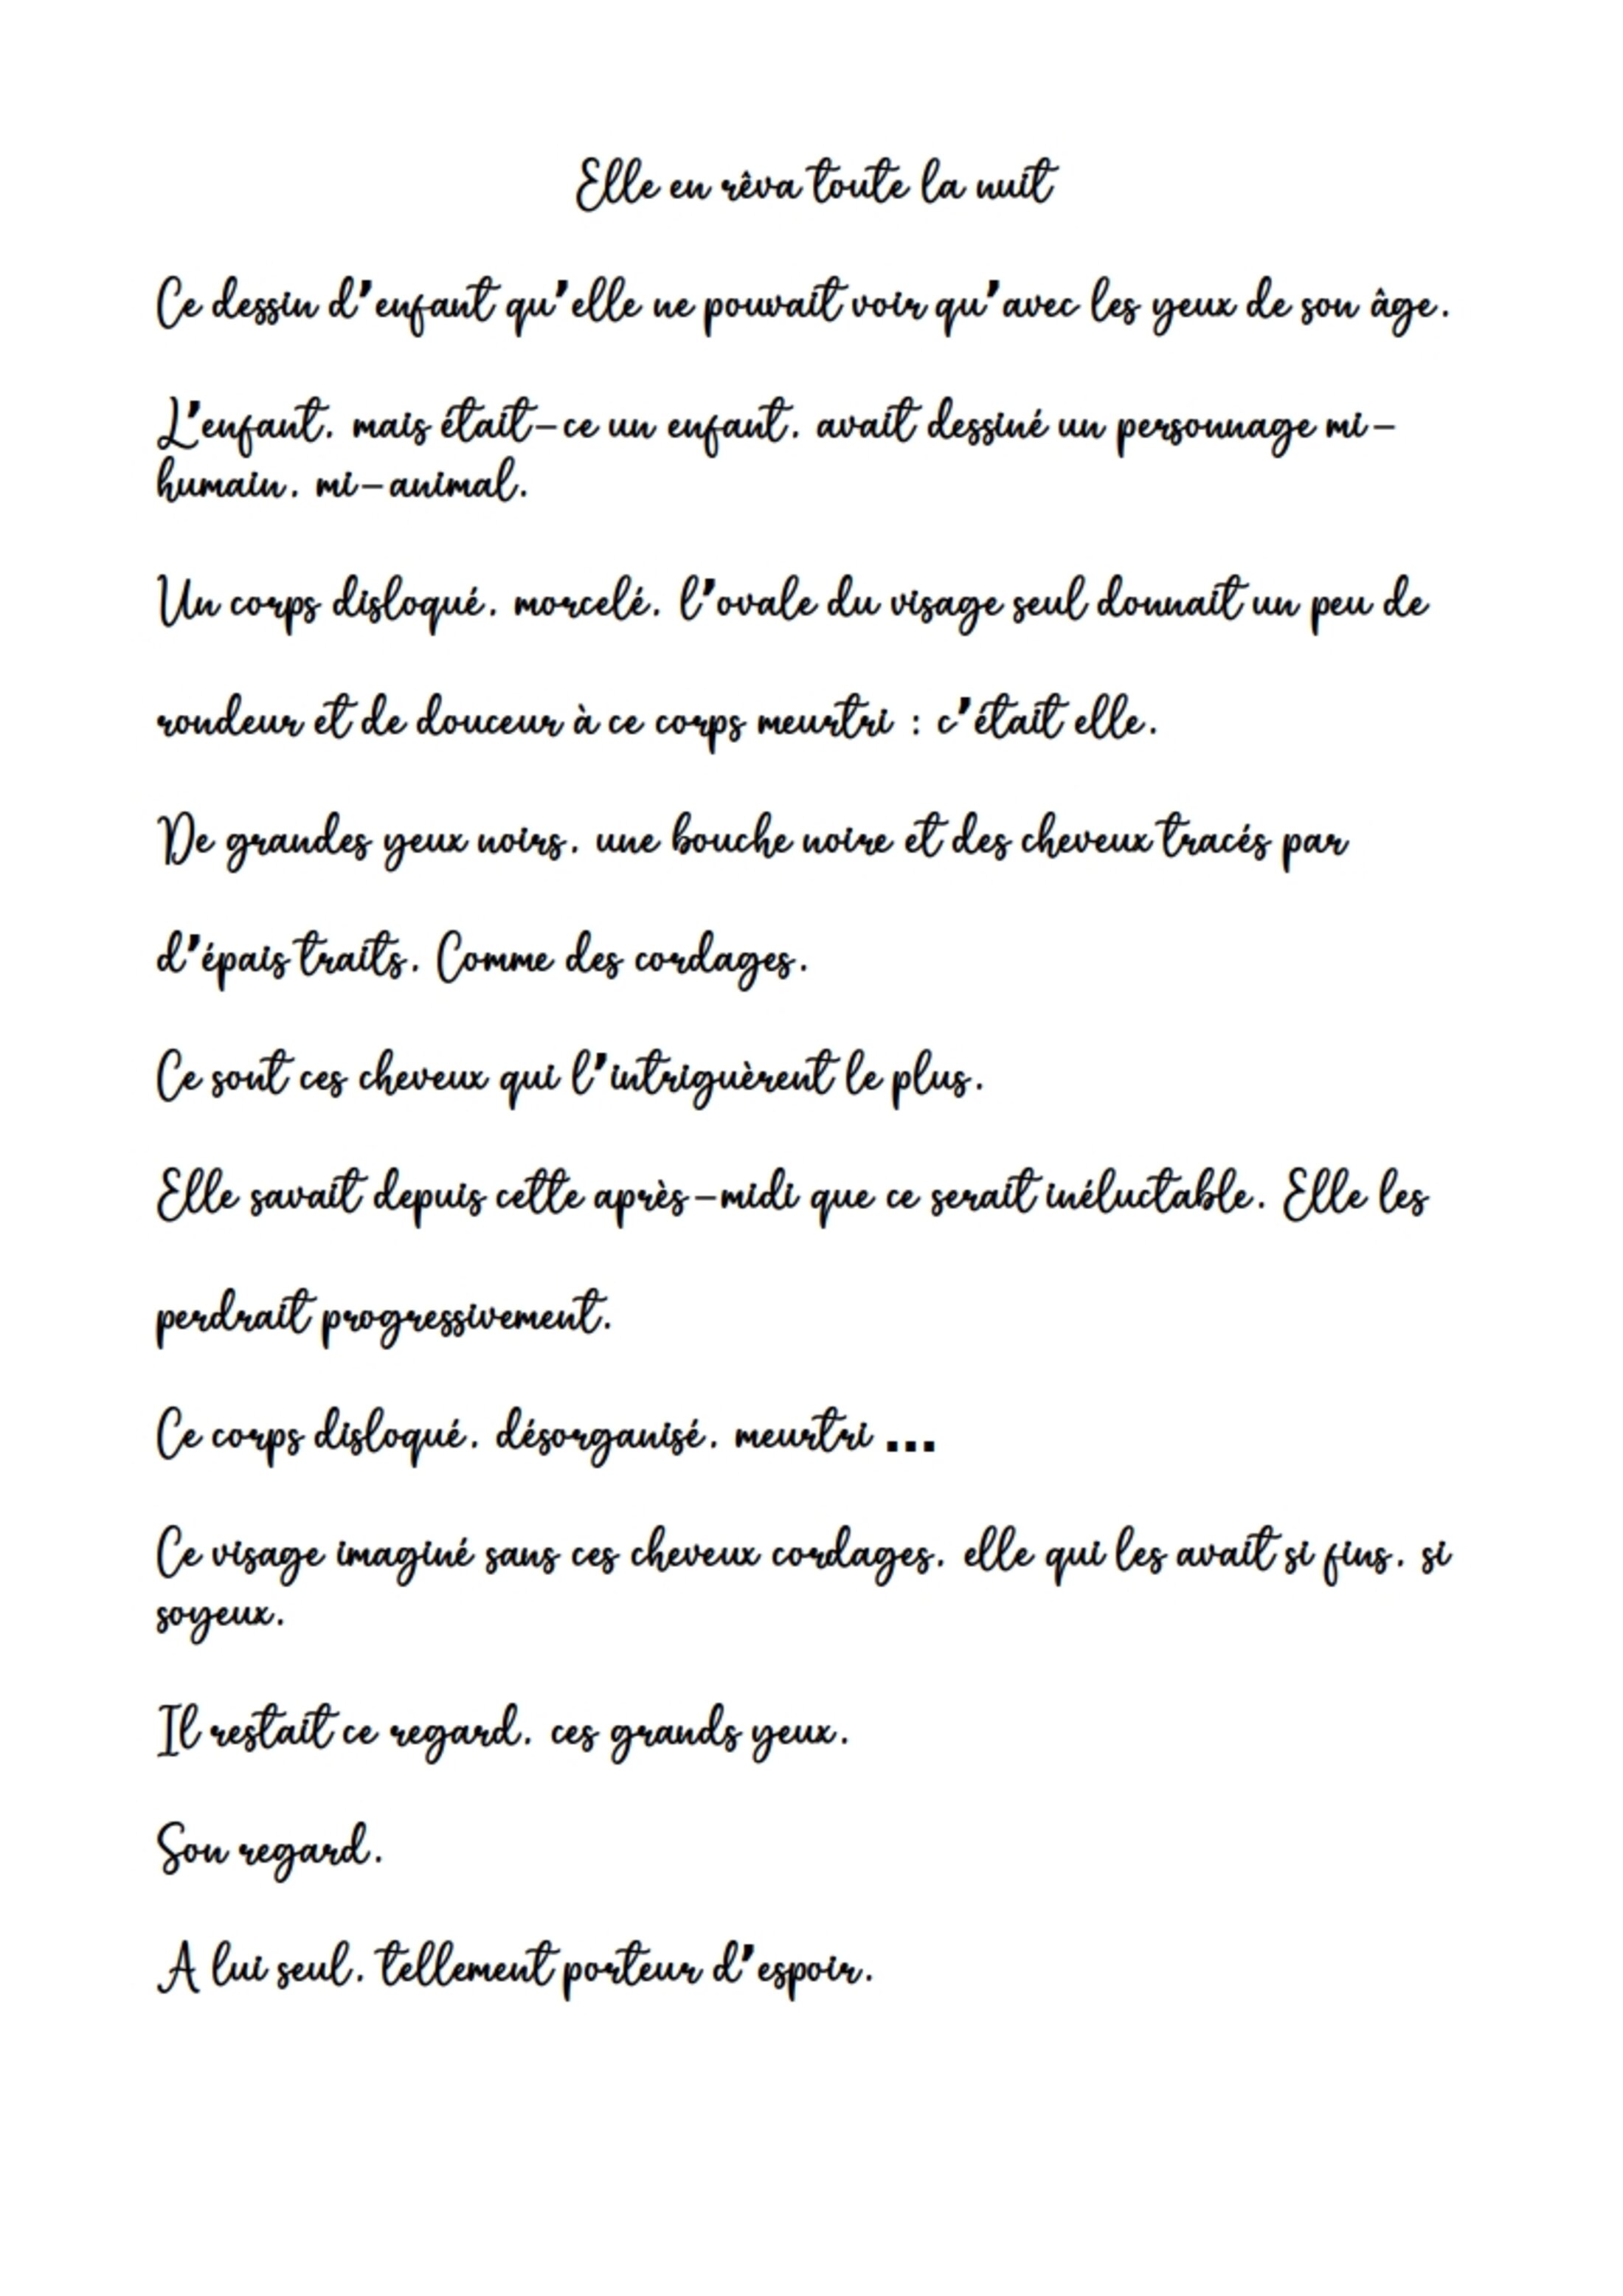 Elle en rêva toute la nuit
Ce dessin d’enfant qu’elle ne pouvait voir qu’avec les yeux de son âge.
L’enfant, mais était-ce un enfant, avait dessiné un personnage mi-
humain, mi-animal.
Un corps disloqué, morcelé, l’ovale du visage seul donnait un peu de
rondeur et de douceur à ce corps meurtri : c’était elle.
De grandes yeux noirs, une bouche noire et des cheveux tracés par
d’épais traits. Comme des cordages.
Ce sont ces cheveux qui l’intriguèrent le plus.
Elle savait depuis cette après-midi que ce serait inéluctable. Elle les
perdrait progressivement.
Ce corps disloqué, désorganisé, meurtri ...
Ce visage imaginé sans ces cheveux cordages, elle qui les avait si fins, si
soyeux.
Il restait ce regard, ces grands yeux.
Son regard.
A lui seul, tellement porteur d’espoir.